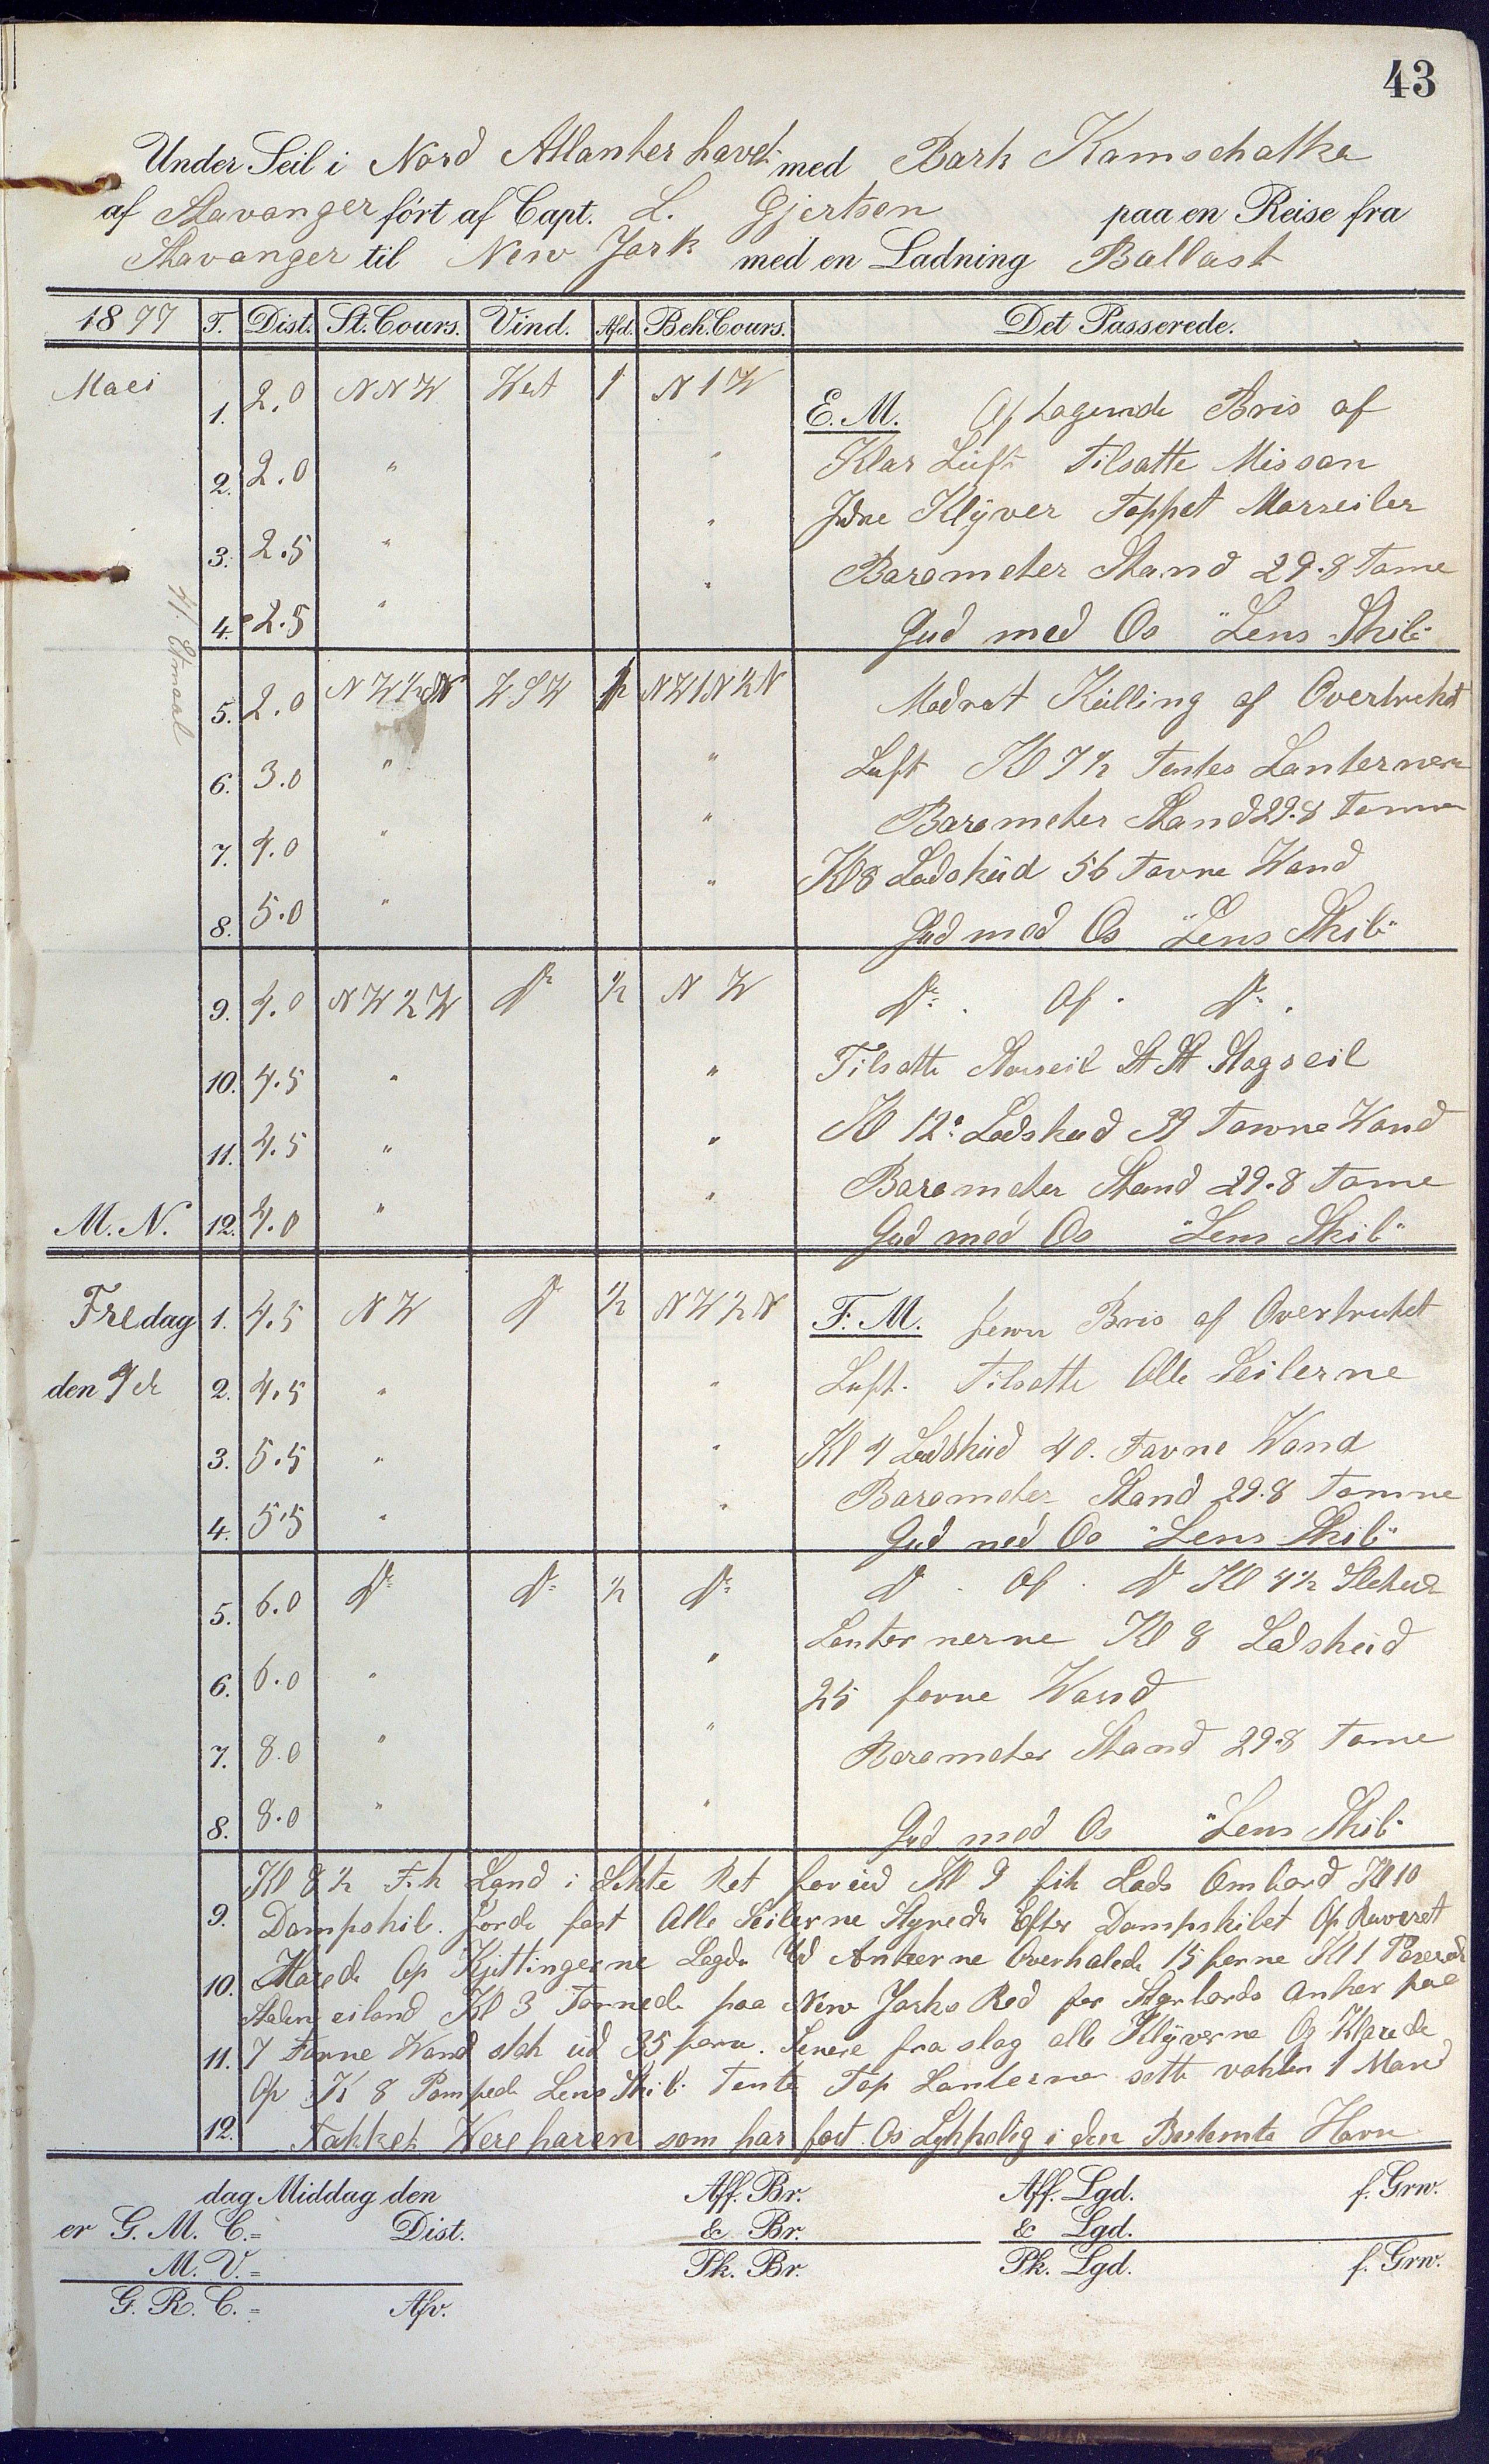 43
Under Seil i Nord Atlanter havet med Bark Kamschatka
af Stavanger ført af Capt. L. Gjertsen paa en Reise fra
Stavanger til New York med en Ladning Ballast
1877 T. Dist. St. Cours. Vind. Afd. Beh. Cours. Det Passerede.
Maei 1. 2.0 NNW West 1 N 1 W E. M. Aftagende Bris af
2. 2.0 " " Klar Lüft Tilsatte Missan
3. 2.5 " " Jndre Klÿver Toppet Marseiler
Barometer Stand 29.8 Tome
4. 2.5 " " Gud med Os "Lens Skib"
Etmaal
5. 2.0 WSW NW1N½N Modrat Külling af Overtrukket
6. 3.0 " " Luft Kl 7½ Tentes Lanternerne
Barometer Stand 29.8 Tomme
7. 4.0 " " Kl 8 Lodsküd 56 Favne Wand
8. 5.0 " " Gud med Os "Lens Skib"
9. 4.0 NW½W Do ½ NW Do. Af. Do.
10. 4.5 " " Tilsatte Storseil St St Stagseil
11. 4.5 " " Kl 12 Lodskud 39 Favne Wand
Barometer Stand 29.8 Tome
M. N. 12. 4.0 " " Gud med Os "Lens Skib"
Fredag 1. 4.5 NW Do ½ NW½N F. M. Bris af Overtrukket
den 2. 4.5 " " Luft. Tilsatte Alle Seilerne
3. 5.5 " " Kl 4 Lodsküd 40. Favne Wand
Barometer Stand 29.8 Tomme
4. 5.5 " " Gud med Os "Lens Skib"
5. 6.0 Do Do ½ Do Do. Af. Do Kl 4½
Lanternerne Kl 8 Lodsküd
6. 6.0 " " 25 favne Wand
7. 8.0 " " Barometer Stand 29.8 Tome
8. 8.0 " " Gud med Os "Lens Skib"
Kl 8½ F.k Land i Sekte Ret forüd Kl 9 fik Lods Ombord Kl 10
9. Dampskib. Jorde fast Alle Seilerne Styrede Efter Dampskibet Op Reveret
10. Op Kjittingerne Lagde Ud Ankerne Overhalede 15 Kl 1 Paserede
Staten eiland Kl 3 Tornede paa New Yorks Red for Styrbords Anker paa
11. 7 Favne Wand stak üd 35 favn. Senere fra slag alle Klÿverne Og Klarede
Op Kl 8 Pompede Lens Skib. Tente Top Lanterne sette vakten 1 Mand
12. Takket Were haren som har ført Os Lykkelig i den Bestemte Havn
dag Middag den Aff. Br. Aff. Lgd. f. Grw.
er G. M. C.= Dist. & Br. & Lgd.
M. V.= Pk. Br. Pk. Lgd. f. Grw.
G. R. C.= Afv.